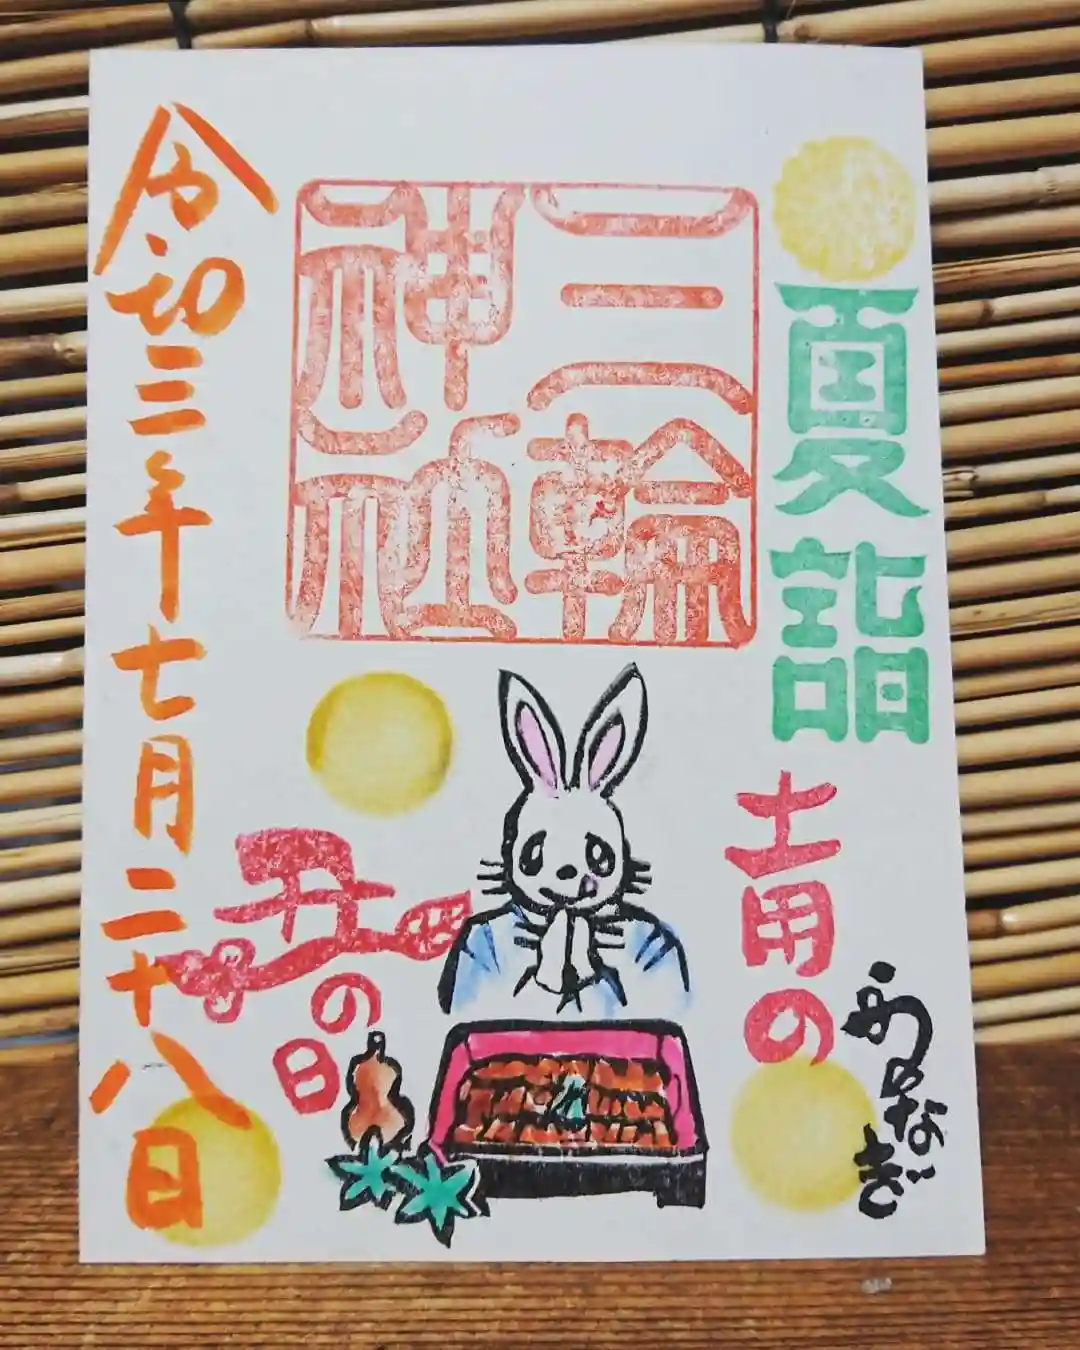 夏詣
土用の
丑の日
うなぎ
三輪
神社
令和三年七月二十八日